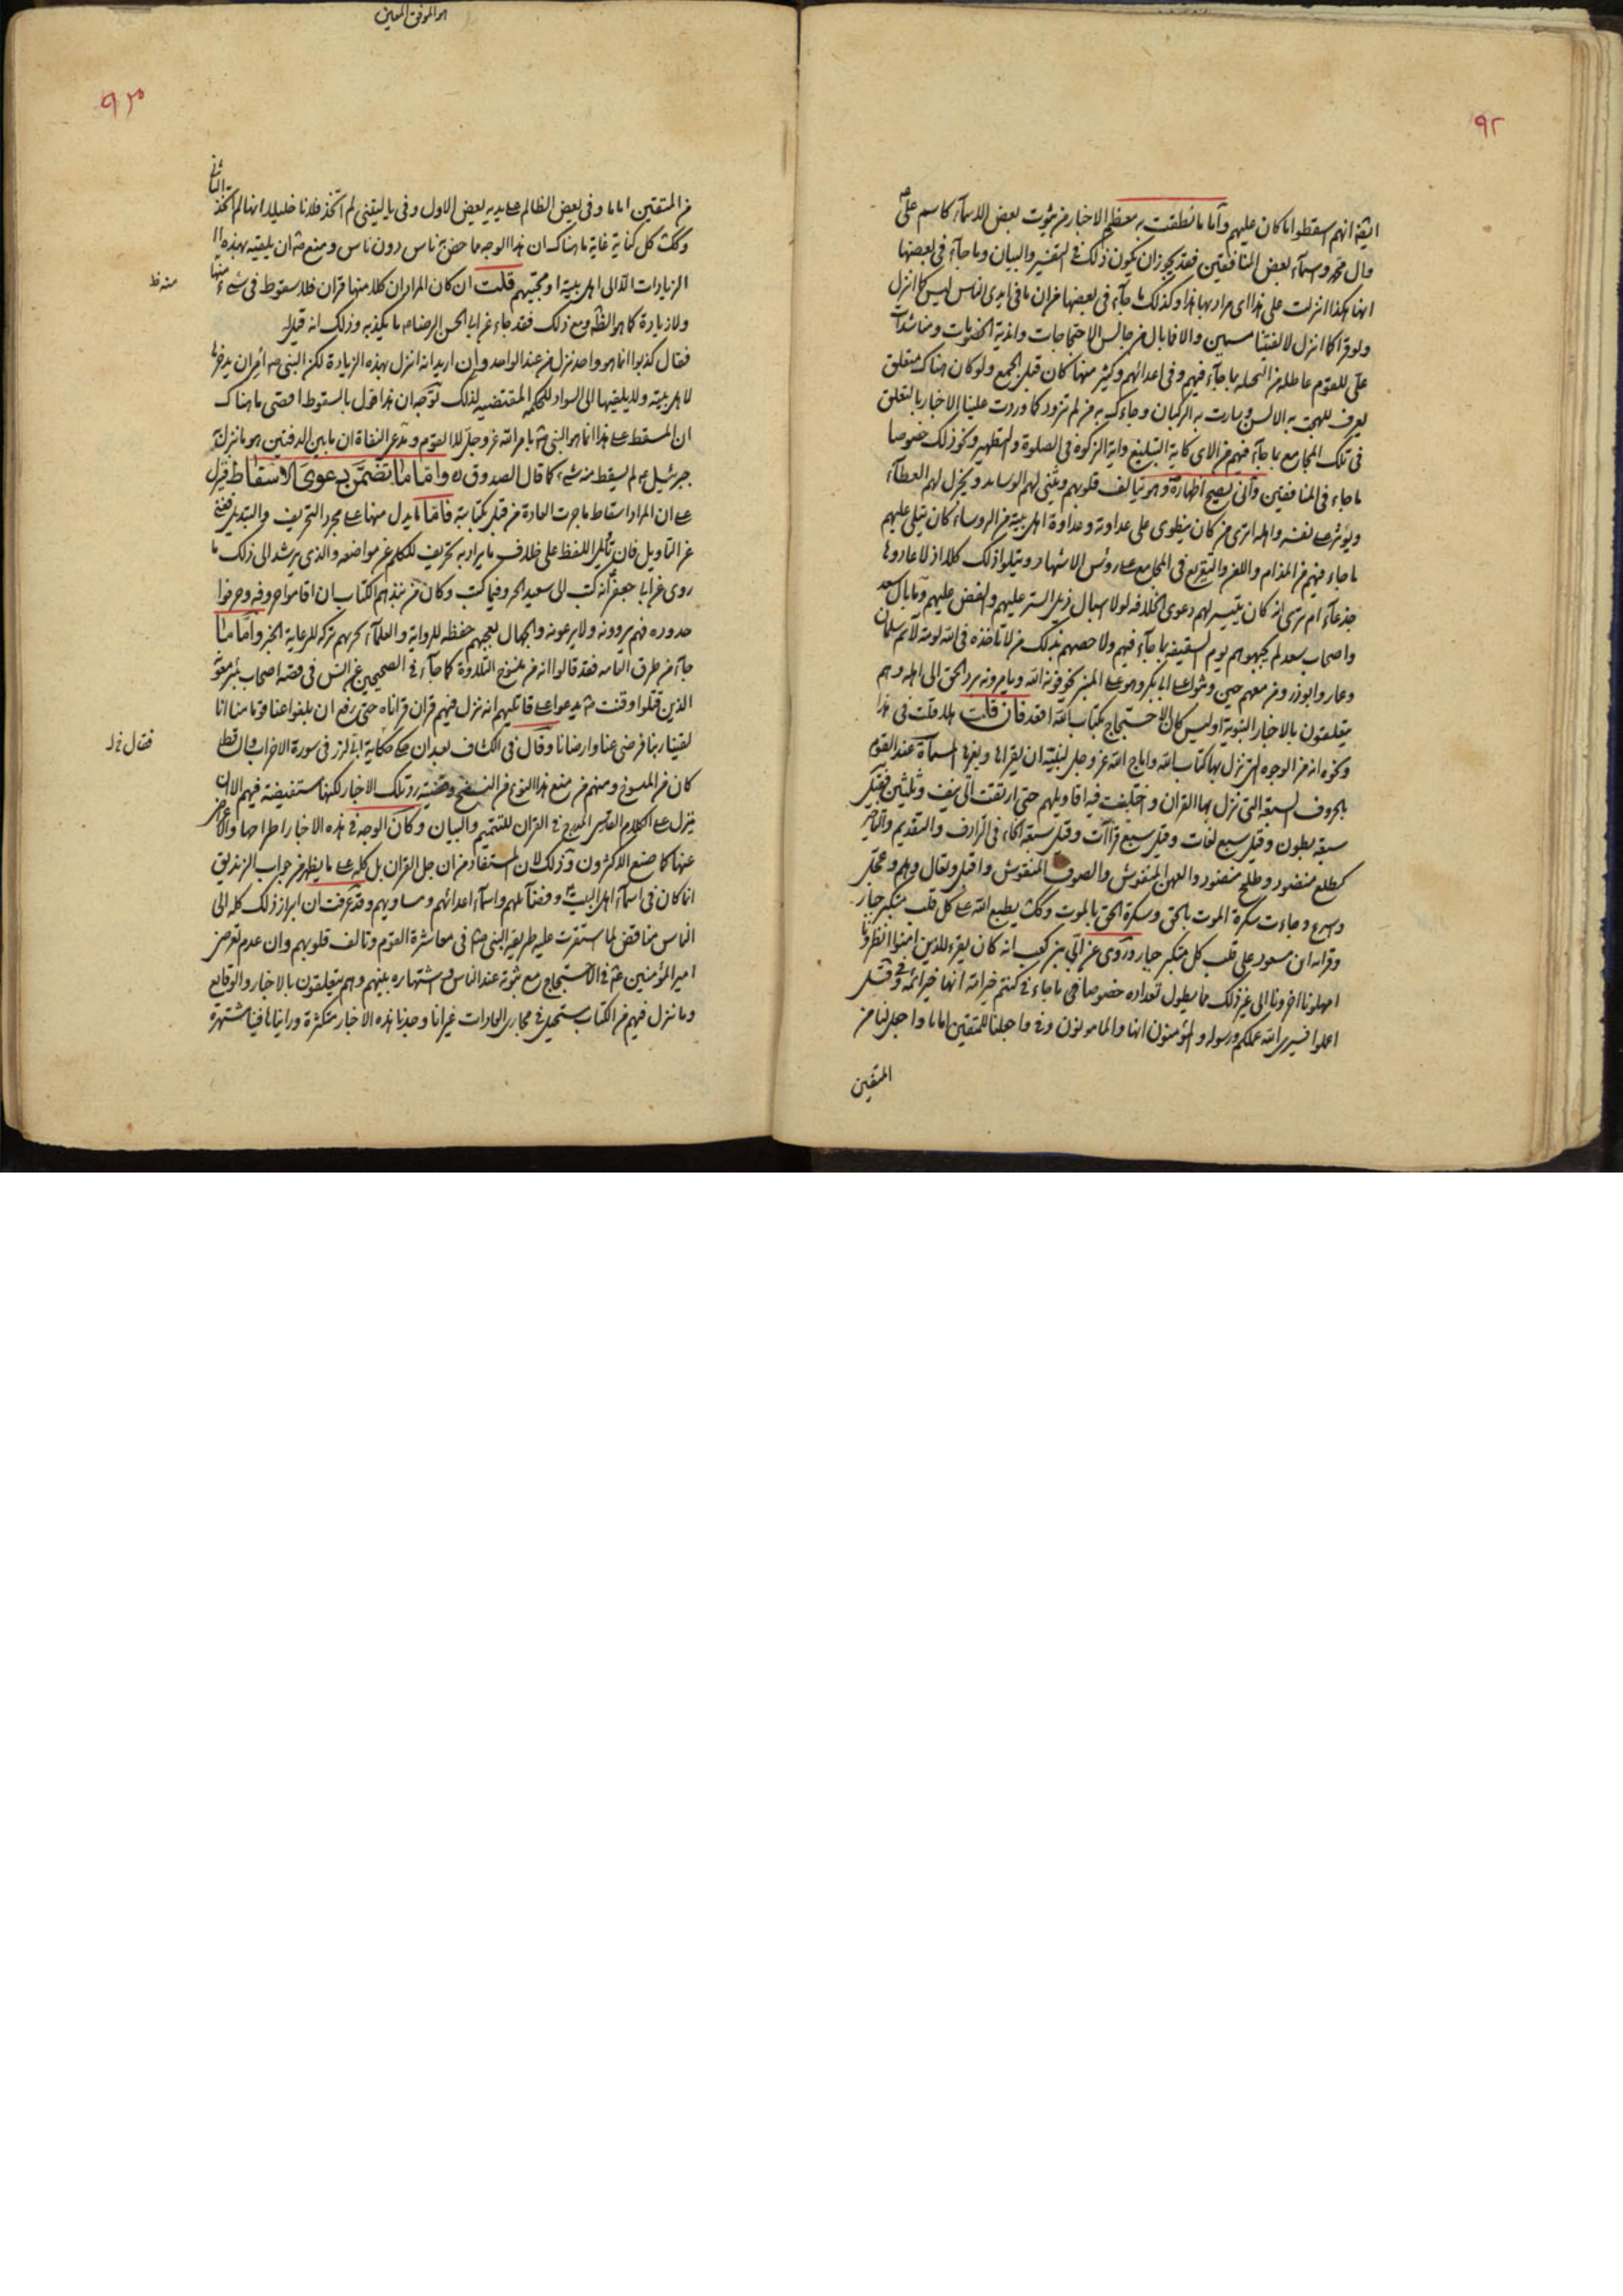 ٩٢
ايضا انهم اسقطوا ما كان عليهم وأما ما نطقت به معظم الاخبار من ثبوت بعض الاسماء كاسم علي
وآل محمد واسماء بعض المنافقين فقد يجوز ان يكون ذلك في التفسير والبيان وما جاء في بعضها
انها هكذا انزلت على هذا اي مراد بها هذا وكذلك ما جاء في بعضها من ان ما في ايدي الناس ليس كما انزل
ولو قرأ كما انزل لالفيتنا مسمين والا فما بال مجالس الاحتجاجات واندية الخصومات ومناشدات
علي للقوم عاطلة من التحلية بما جاء فيهم وفي اعدائهم وكثير منها كان قبل الجمع ولو كان هناك متعلق
يعرف للهجت به الالسن وسارت به الركبان وجاءك به من لم تزود كما وردت علينا الاخبار بالتعلق
في تلك المجامع بما جاء فيهم من الآي كآية التبليغ وآية الزكوة في الصلوة والتطهير ونحو ذلك خصوصا
ما جاء في المنافقين وأنى يصح اظهاره وهو يتالف قلوبهم ويثني لهم الوسايد ويجزل لهم العطاء
ويؤثرهم على نفسه واهله اترى من كان ينطوي على عداوته وعداوة اهل بيته من الرؤساء كان يتلى عليهم
ما جاء فيهم من المذام واللعن والتقريع في المجامع على رؤس الاشهاد ويتلو ذلك كلا اذ لاعادوها
جذعاء ام ترى انه كان يتيسر لهم دعوى الخلافة لولا اسبال ذيل الستر عليهم والغض عليهم وما بال سعد
واصحاب سعد لم يجبهوهم يوم السقيفة بما جاء فيهم ولا خصمهم بذلك من لا تاخذه في الله لومة لائم سلمان
وعمار وابوذر ومن معهم حين وثبوا على ابا بكر وهو على المنبر يخوفونه الله ويأمرونه برد الحق الى اهله وهم
يتعلقون بالاخبار النبوية اوليس كان الاحتجاج بكتاب الله اقعد فان قلت هلا قلت في هذا
ونحوه انه من الوجوه التي نزل بها كتاب الله واباح الله عز وجل لنبيه ان يقراها ويقرها المسماة عند القوم
بالحروف السبعة التي نزل بها القران واختلفت فيه اقاويلهم حتى ارتقت الى نيف وثلثين فقيل
سبعة بطون وقيل سبع لغات وقيل سبع قراآت وقيل سبعة انحاء في الترادف والتقديم والتاخير
كطلع منضود وطلح منضود والعهن المنفوش والصوف المنفوش واقبل وتعال وهلم وعجل
واسرع وجاءت سكرة الموت بالحق وسكرة الحق بالموت وكك يطبع الله على كل قلب متكبر جبار
وقراءة ابن مسعود على قلب كل متكبر جبار وروي عن أبي بن كعب انه كان يقرء للذين امنوا انظرونا
امهلونا اخرونا الى غير ذلك مما يطول تعداده خصوصا في ما جاء في كنتم خير امة انها خير ائمة وفي قل
اعملوا فسيرى الله عملكم ورسوله والمؤمنون انها والمامونون وفي واجعلنا للمتقين اماما واجعل لنا من
المتقين
هو الموفق المعين
٩٣
من المتقين اماما وفي يعض الظالم على يديه يعض الاول وفي يا ليتني لم اتخذ فلانا خليلا انها لم اتخذ الثاني
وكك كل كناية غاية ما هناك ان هذا الوجه مما خص به ناس دون ناس ومنع من ان يلقيه بهذه
الزيادات الا الى اهل بيته او محبيهم قلت ان كان المراد ان كلا منها قران فلا سقوط في شيء منها
منه ظ
ولا زيادة كما هو الظ ومع ذلك فقد جاء عن ابي الحسن الرضا ما يكذبه وذلك انه قيل له
فقال كذبوا انما هو واحد نزل من عند الواحد وان اريد انه انزل بهذه الزيادة لكن النبي ص امر ان يدخرها
لاهل بيته ولا يلقيها الى السواد للحكمة المقتضية لذلك توجه ان هذا قول بالسقوط اقصى ما هناك
ان المسقط على هذا انما هو النبي ص بامر الله عز وجل لا القوم ومدعى النفاة ان ما بين الدفتين هو ما نزل به
جبرئيل ع لم يسقط منه شيء كما قال الصدوق ره واما ما تضمن دعوى الاسقاط فنزل
على ان المراد اسقاط ما جرت العادة من قبل بكتابته فاما ما يدل منها على مجرد التحريف والتبديل فعبارة
عن التاويل فان تأويل اللفظ على خلاف ما يراد به تحريف للكلم عن مواضعه والذي يرشد الى ذلك ما
روى عن ابا جعفر انه كتب الى سعيد الخير وفيما كتب وكان من نبذهم الكتاب ان اقاموا حروفه وحرفوا
حدوده فهم يروونه ولا يرعونه والجهال يعجبهم حفظه للرواية والعلماء يحزنهم تركه للرعاية الخبر وأما ما
جاء من طرق العامه فقد قالوا انه من منسوخ التلاوة كما جاء في الصحيحين عن انس في قصة اصحاب بئر معونة
الذين قتلوا وقنت ص يدعوا على قاتليهم انه نزل فيهم قران قراناه حتى رفع ان بلغوا عنا قومنا انا
لقينا ربنا فرضي عنا وارضانا وقال في الكشاف بعد ان حكى حكاية أبي لزر في سورة الاحزاب قال
كان من المنسوخ ومنهم من منع هذا النوع من النسخ وقضيته رد تلك الاخبار لكنها مستفيضة فيهم الا ان
ينزل على الكلام القدسي المدرج في القران للتتميم والبيان وكان الوجه في هذه الاخبار اطراحها والاعراض
عنها كما صنع الاكثرون وذلك لان المستفاد من ان جل القران بل كله على ما يظهر من جواب الزنديق
انما كان في اسماء اهل البيت وفضائلهم واسماء اعدائهم ومساويهم وقد عرفت ان ابراز ذلك كله الى
الناس مناقض لما استقرت عليه طريقة النبي ص في معاشرة القوم وتالف قلوبهم وان عدم تعرض
امير المؤمنين ع في الاحتجاج مع ثبوته عند الناس واشتهاره بينهم وهم يتعلقون بالاخبار والوقايع
وما نزل فيهم من الكتاب مستحيل في مجاري العادات غير انا وجدنا هذه الاخبار متكثرة ورايناها فينا مشتهرة